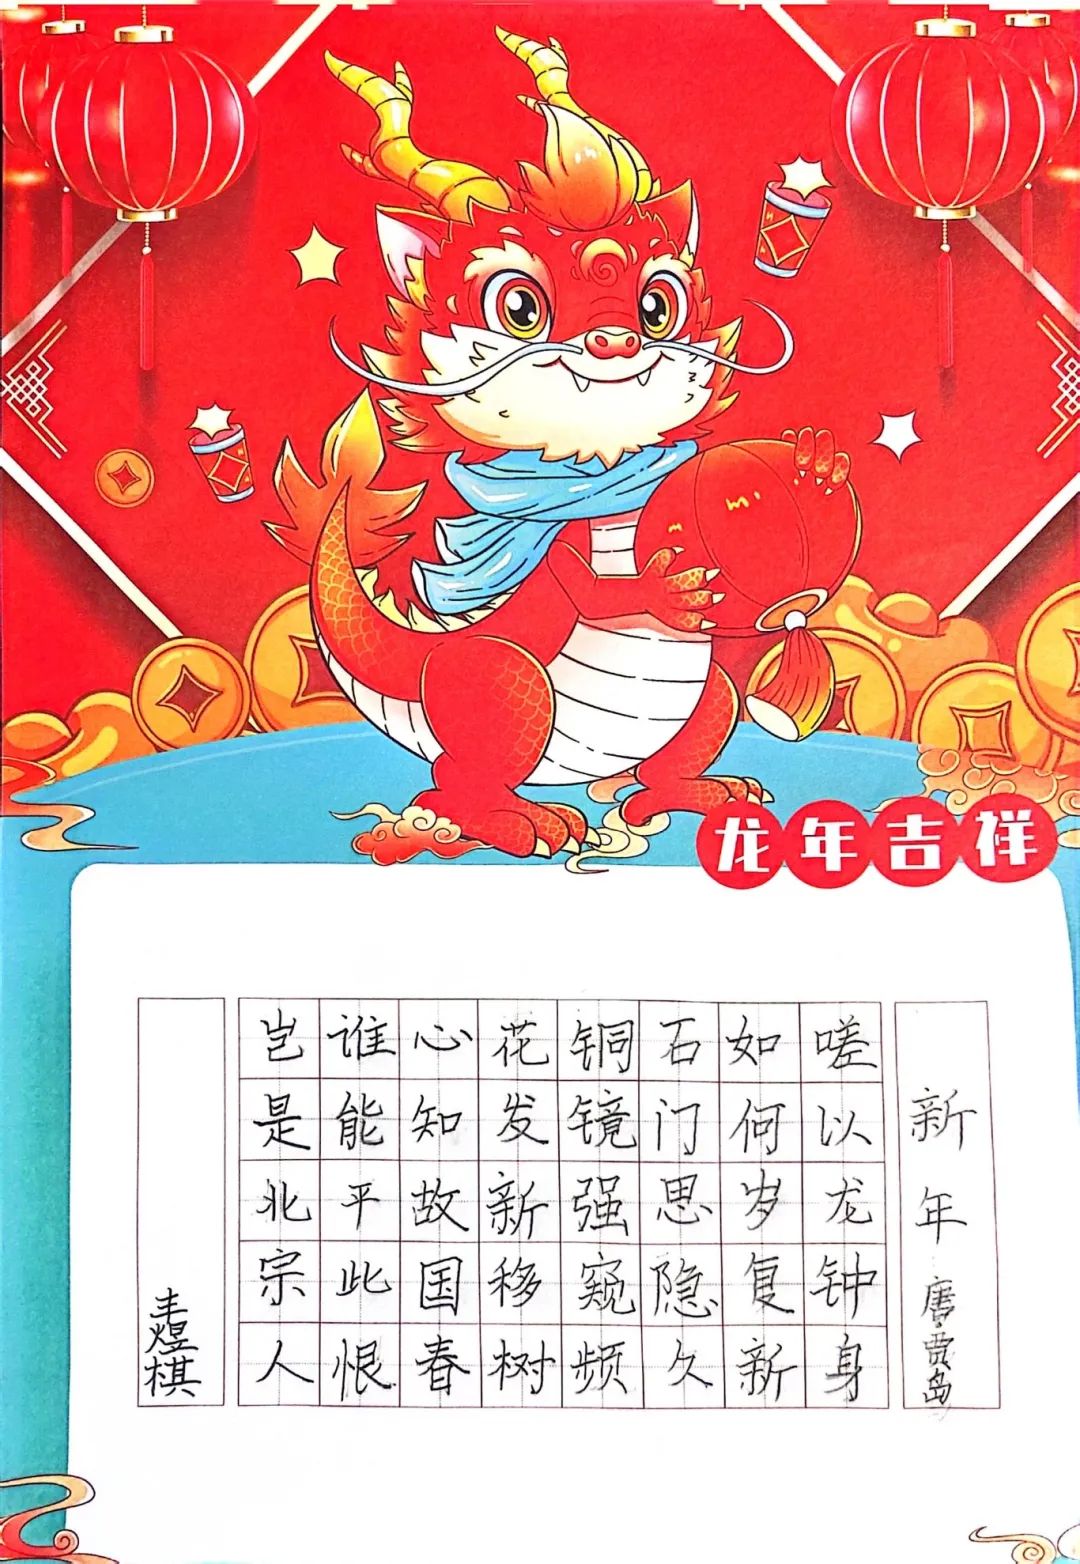 龙年吉祥
新年 唐·贾岛
嗟以龙钟身
如何岁复新
石门思隐久
铜镜强窥频
花发新移树
心知故国春
谁能平此恨
岂是北宗人
煜棋